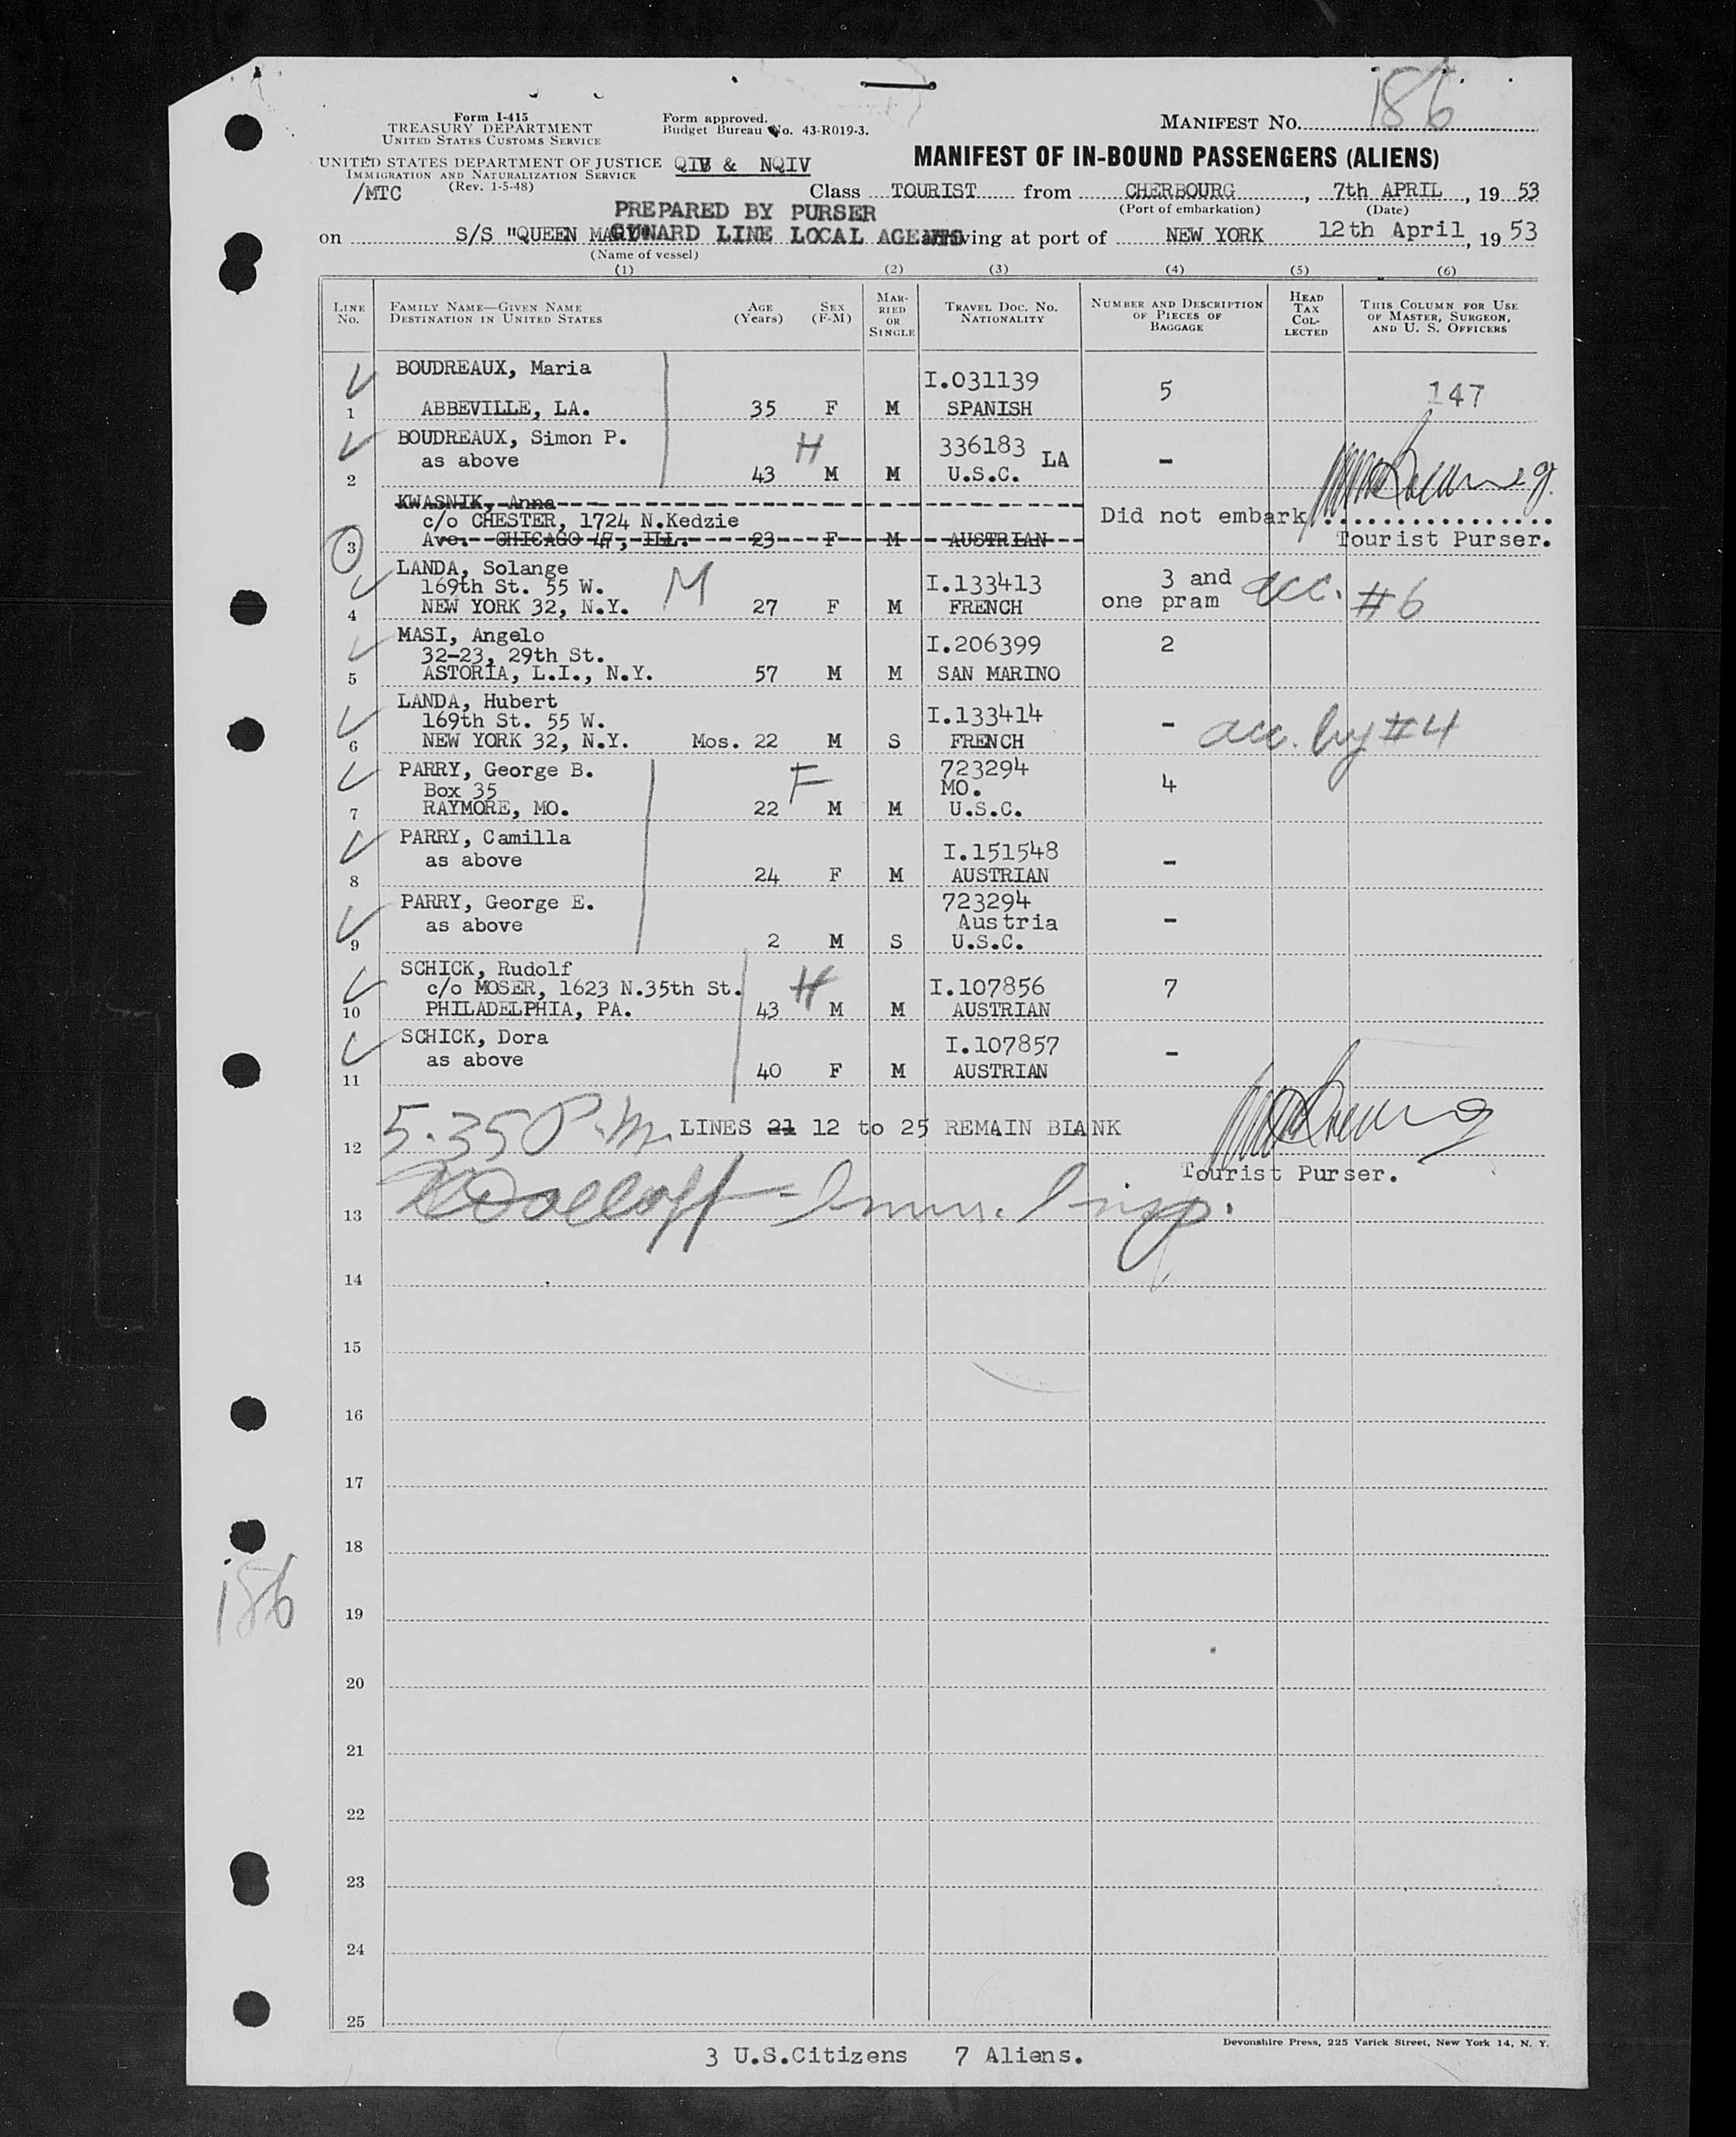 186
Form I-415
TREASURY DEPARTMENT
UNITED STATES CUSTOMS SERVICE
Form approved.
Budget Bureau No. 43-R019-3.
MANIFEST NO.
UNITED STATES DEPARTMENT OF JUSTICE
IMMIGRATION AND NATURALIZATION SERVICE
(Rev. 1-5-48)
/MTC
QIV & NQIV
MANIFEST OF IN-BOUND PASSENGERS (ALIENS)
Class TOURIST from CHERBOURG, 7th APRIL, 19 53
(Port of embarkation) (Date)
PREPARED BY PURSER
CUNARD LINE LOCAL AGENTS
on S/S "QUEEN MARY" arriving at port of NEW YORK 12th April, 19 53
(Name of vessel)
(1) (2) (3) (4) (5) (6)
LINE NO.
FAMILY NAME—GIVEN NAME
DESTINATION IN UNITED STATES
AGE (Years)
SEX (F-M)
MARRIED OR SINGLE
TRAVEL DOC. NO.
NATIONALITY
NUMBER AND DESCRIPTION OF PIECES OF BAGGAGE
HEAD TAX COLLECTED
THIS COLUMN FOR USE OF MASTER, SURGEON, AND U. S. OFFICERS
BOUDREAUX, Maria I.031139 5 147
1 ABBEVILLE, LA. 35 F M SPANISH
BOUDREAUX, Simon P. H 336183 LA
as above
2 43 M M U.S.C. -
KWASNIK, Anna
c/o CHESTER, 1724 N.Kedzie Did not embark
3 Ave. CHICAGO 47, ILL. 23 F M AUSTRIAN Tourist Purser.
LANDA, Solange
169th St. 55 W. M I.133413 3 and acc. #6
4 NEW YORK 32, N.Y. 27 F M FRENCH one pram
MASI, Angelo I.206399 2
32-23, 29th St.
5 ASTORIA, L.I., N.Y. 57 M M SAN MARINO
LANDA, Hubert I.133414
169th St. 55 W. - acc. by #4
6 NEW YORK 32, N.Y. Mos. 22 M S FRENCH
PARRY, George B. F 723294
Box 35 MO. 4
7 RAYMORE, MO. 22 M M U.S.C.
PARRY, Camilla I.151548
as above -
8 24 F M AUSTRIAN
PARRY, George E. 723294
as above Austria -
9 2 M S U.S.C.
SCHICK, Rudolf H
c/o MOSER, 1623 N.35th St. I.107856 7
10 PHILADELPHIA, PA. 43 M M AUSTRIAN
SCHICK, Dora I.107857
as above -
11 40 F M AUSTRIAN
5.35 P.M. LINES 21 12 to 25 REMAIN BLANK
12
Tourist Purser.
13 Immn. Insp.
14
15
16
17
18
186
19
20
21
22
23
24
25
Devonshire Press, 225 Varick Street, New York 14, N. Y.
3 U.S.Citizens 7 Aliens.